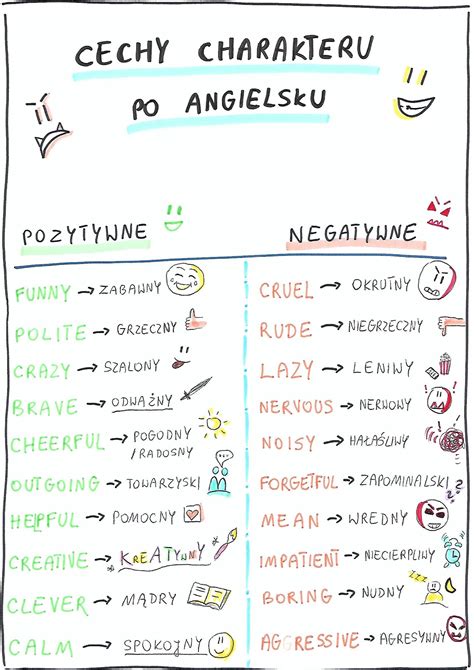 CECHY CHARAKTERU
PO ANGIELSKU
POZYTYWNE
FUNNY → ZABAWNY
POLITE → GRZECZNY
CRAZY → SZALONY
BRAVE → ODWAŻNY
CHEERFUL → POGODNY
/RADOSNY
OUTGOING → TOWARZYSKI
HELPFUL → POMOCNY
CREATIVE → KREATYWNY
CLEVER → MĄDRY
CALM → SPOKOJNY
NEGATYWNE
CRUEL → OKRUTNY
RUDE → NIEGRZECZNY
LAZY → LENIWY
NERVOUS → NERWOWY
NOISY → HAŁAŚLIWY
FORGETFUL → ZAPOMINALSKI ? ?
MEAN → WREDNY
IMPATIENT → NIECIERPLIWY
BORING → NUDNY zzz
AGGRESSIVE → AGRESYWNY